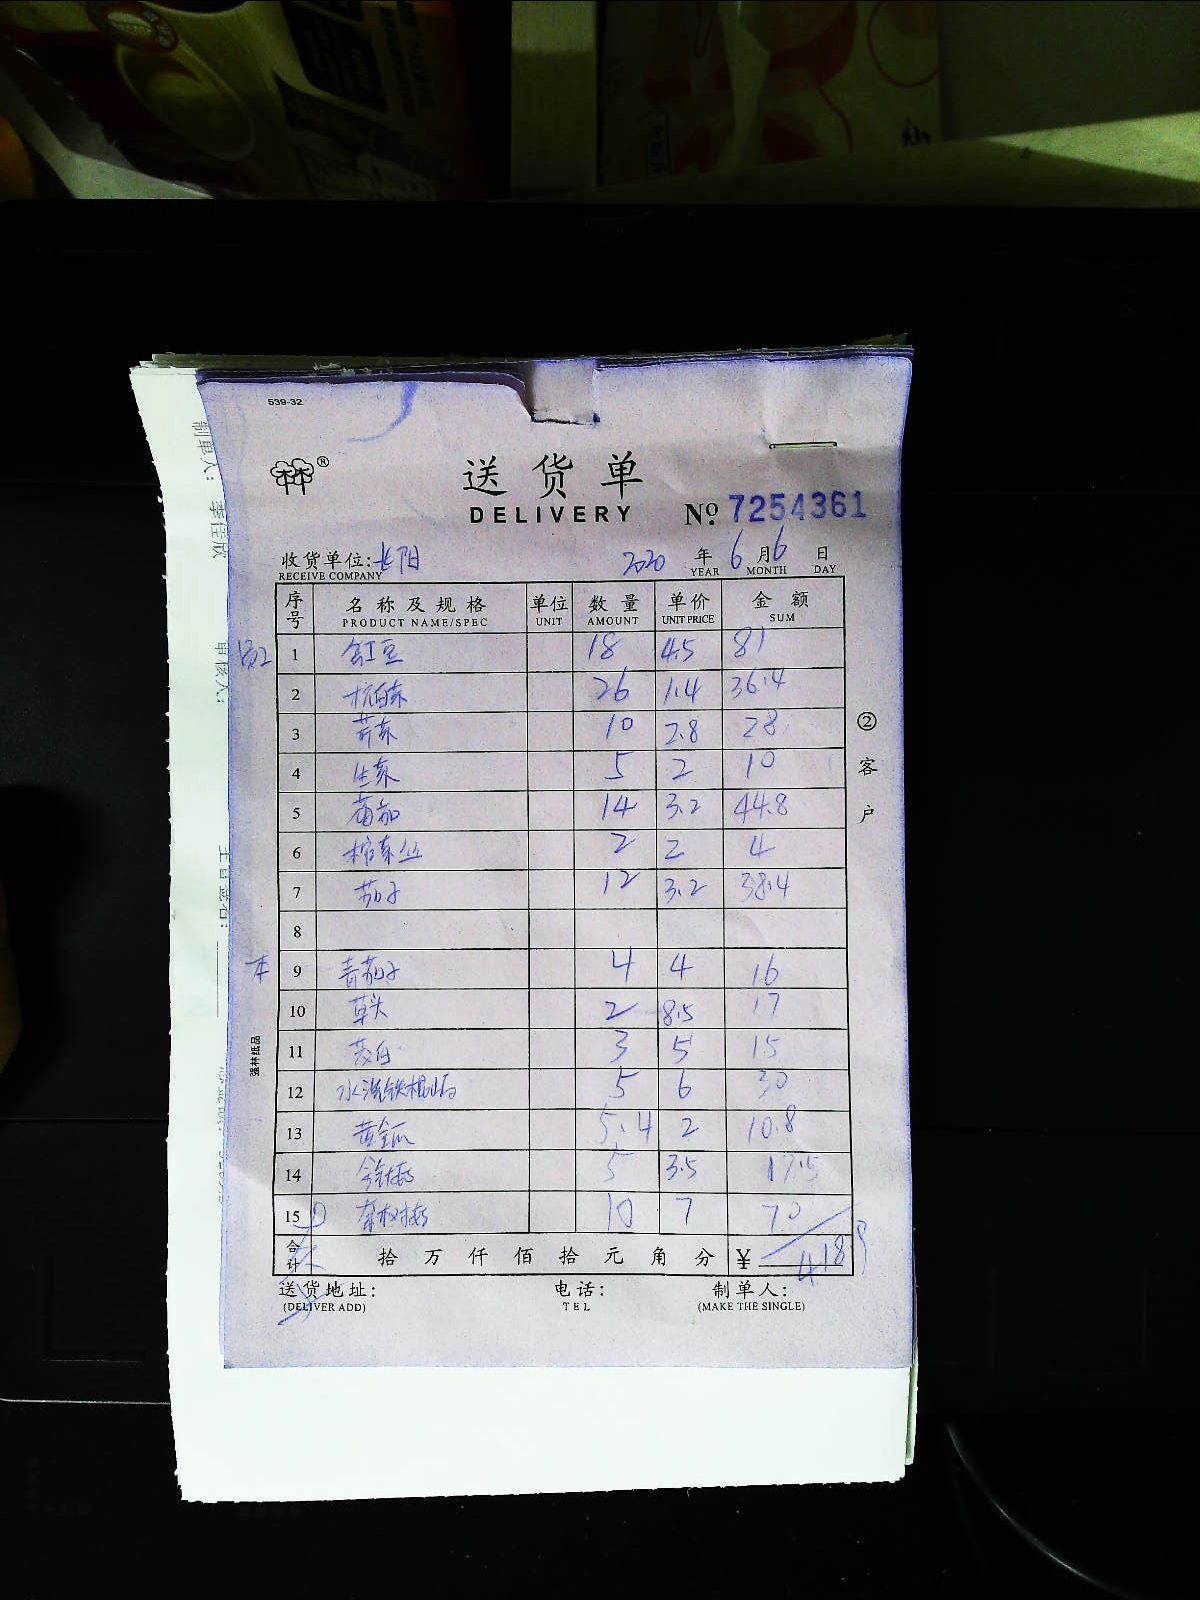 539-32
®
送货单
DELIVERY
№ 7254361
收货单位: 长阳 2020 年 6 月 6 日
RECEIVE COMPANY YEAR MONTH DAY
序号 名称及规格 单位 数量 单价 金额
PRODUCT NAME/SPEC UNIT AMOUNT UNIT PRICE SUM
1 豇豆 18 4.5 81
2 杭白菜 26 1.4 36.4
3 芹菜 10 2.8 28
4 生菜 5 2 10
5 蕃茄 14 3.2 44.8
6 榨菜丝 2 2 4
7 茄子 12 3.2 38.4
8
本 9 青茄子 4 4 16
10 草头 2 8.5 17
11 茭白 3 5 15
12 水洗铁棍山药 5 6 30
13 黄金瓜 5.4 2 10.8
14 金针菇 5 3.5 17.5
15 茶树菇 10 7 70
合计 拾 万 仟 佰 拾 元 角 分 ¥ 418.9
送货地址: 电话: 制单人:
(DELIVER ADD) TEL (MAKE THE SINGLE)
② 客户
强林纸品
制单人: 李佳欣
审核人: